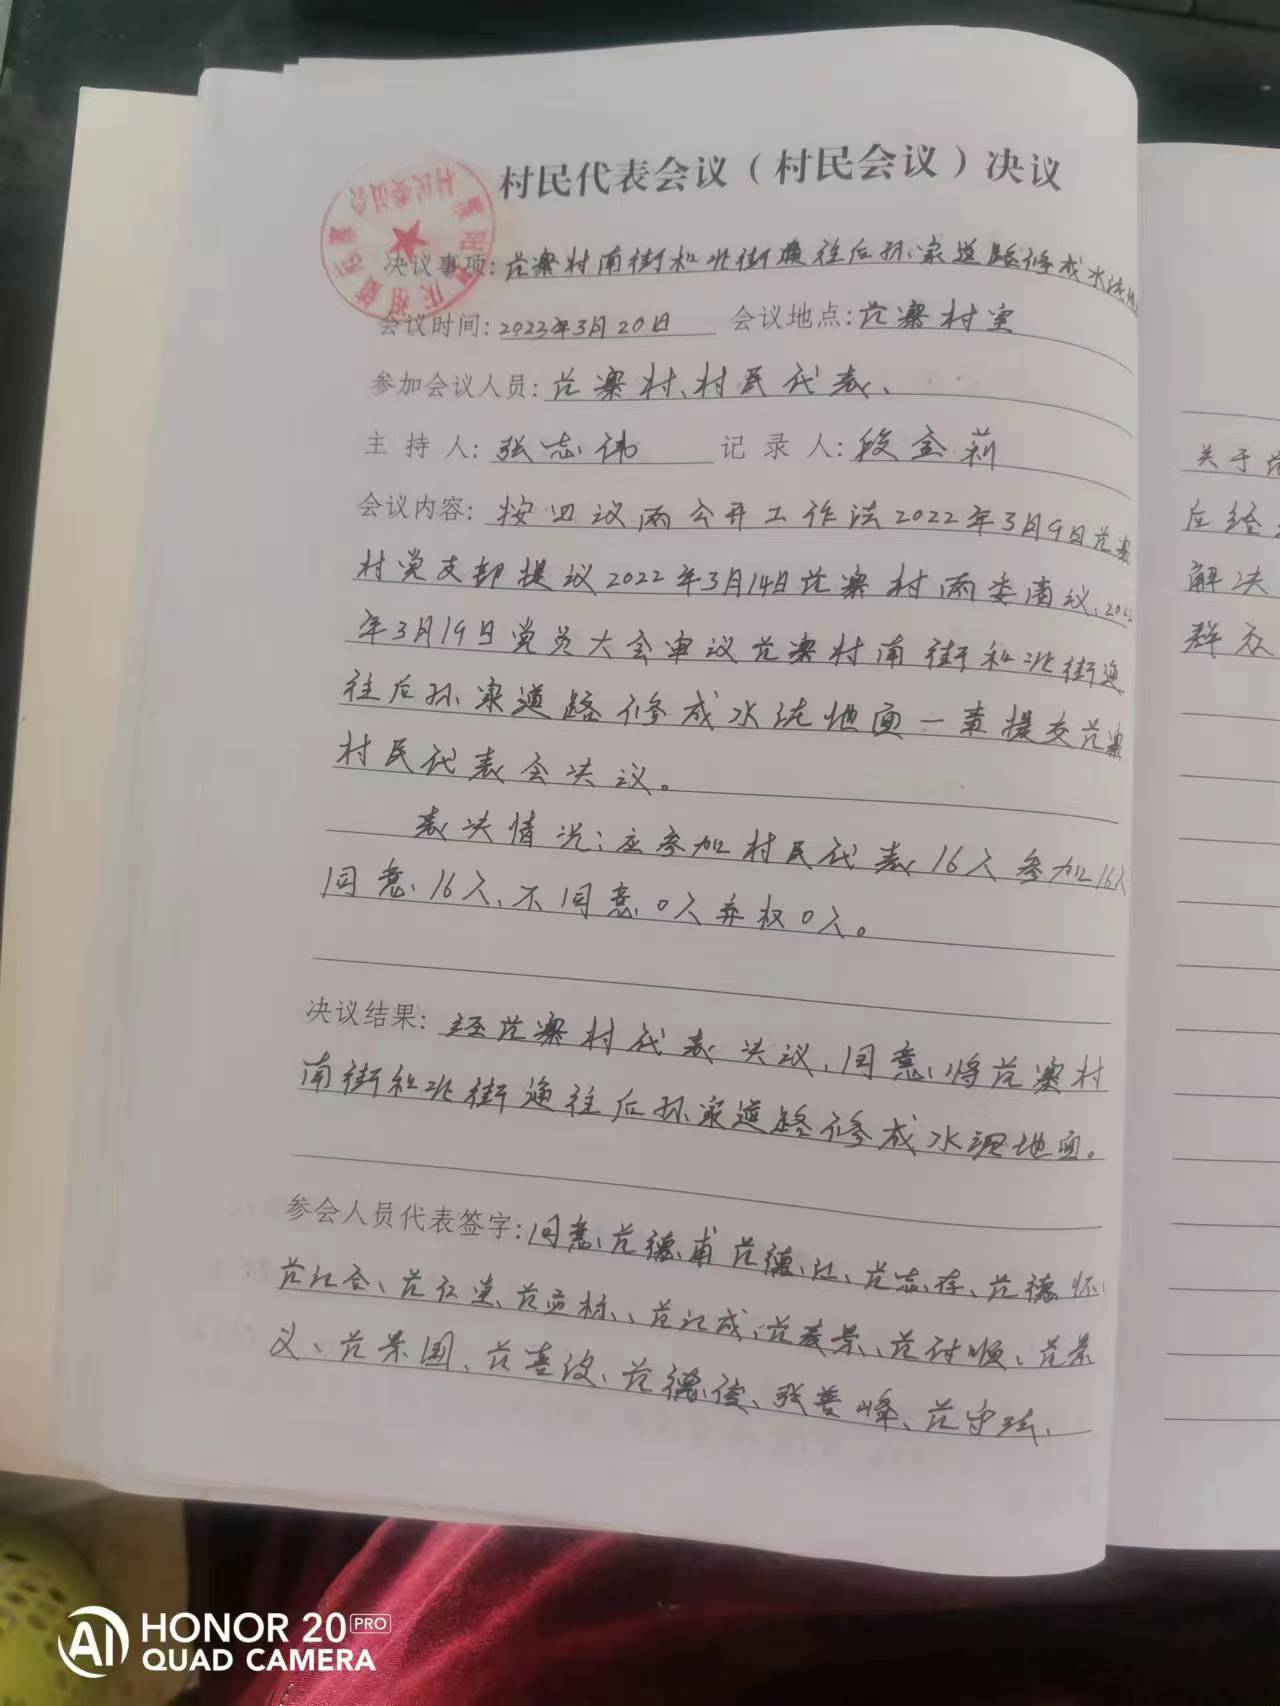 村民代表会议（村民会议）决议
决议事项：范寨村南街和北街通往后孙家道路修成水泥地
会议时间：2022年3月20日 会议地点：范寨村室
参加会议人员：范寨村、村民代表、
主持人：张志伟 记录人：段金莉
会议内容：按四议两公开工作法2022年3月9日范寨
村党支部提议2022年3月14日范寨村两委商议、2022
年3月19日党员大会审议范寨村南街和北街通
往后孙家道路修成水泥地面一事提交范寨
村民代表会决议。
表决情况：应参加村民代表16人参加16人
同意16人、不同意0人弃权0人。
决议结果：经范寨村代表决议，同意将范寨村
南街和北街通往后孙家道路修成水泥地面。
参会人员代表签字：同意、范德甫 范德江、范志存、范德怀、
范江合、范红堂、范江成、范麦景、范付顺、范景
义、范景国、范喜汶、范德俊、张善峰、范守
关于范
应经
解决
群众
村民委员会
HONOR 20 PRO
AI QUAD CAMERA